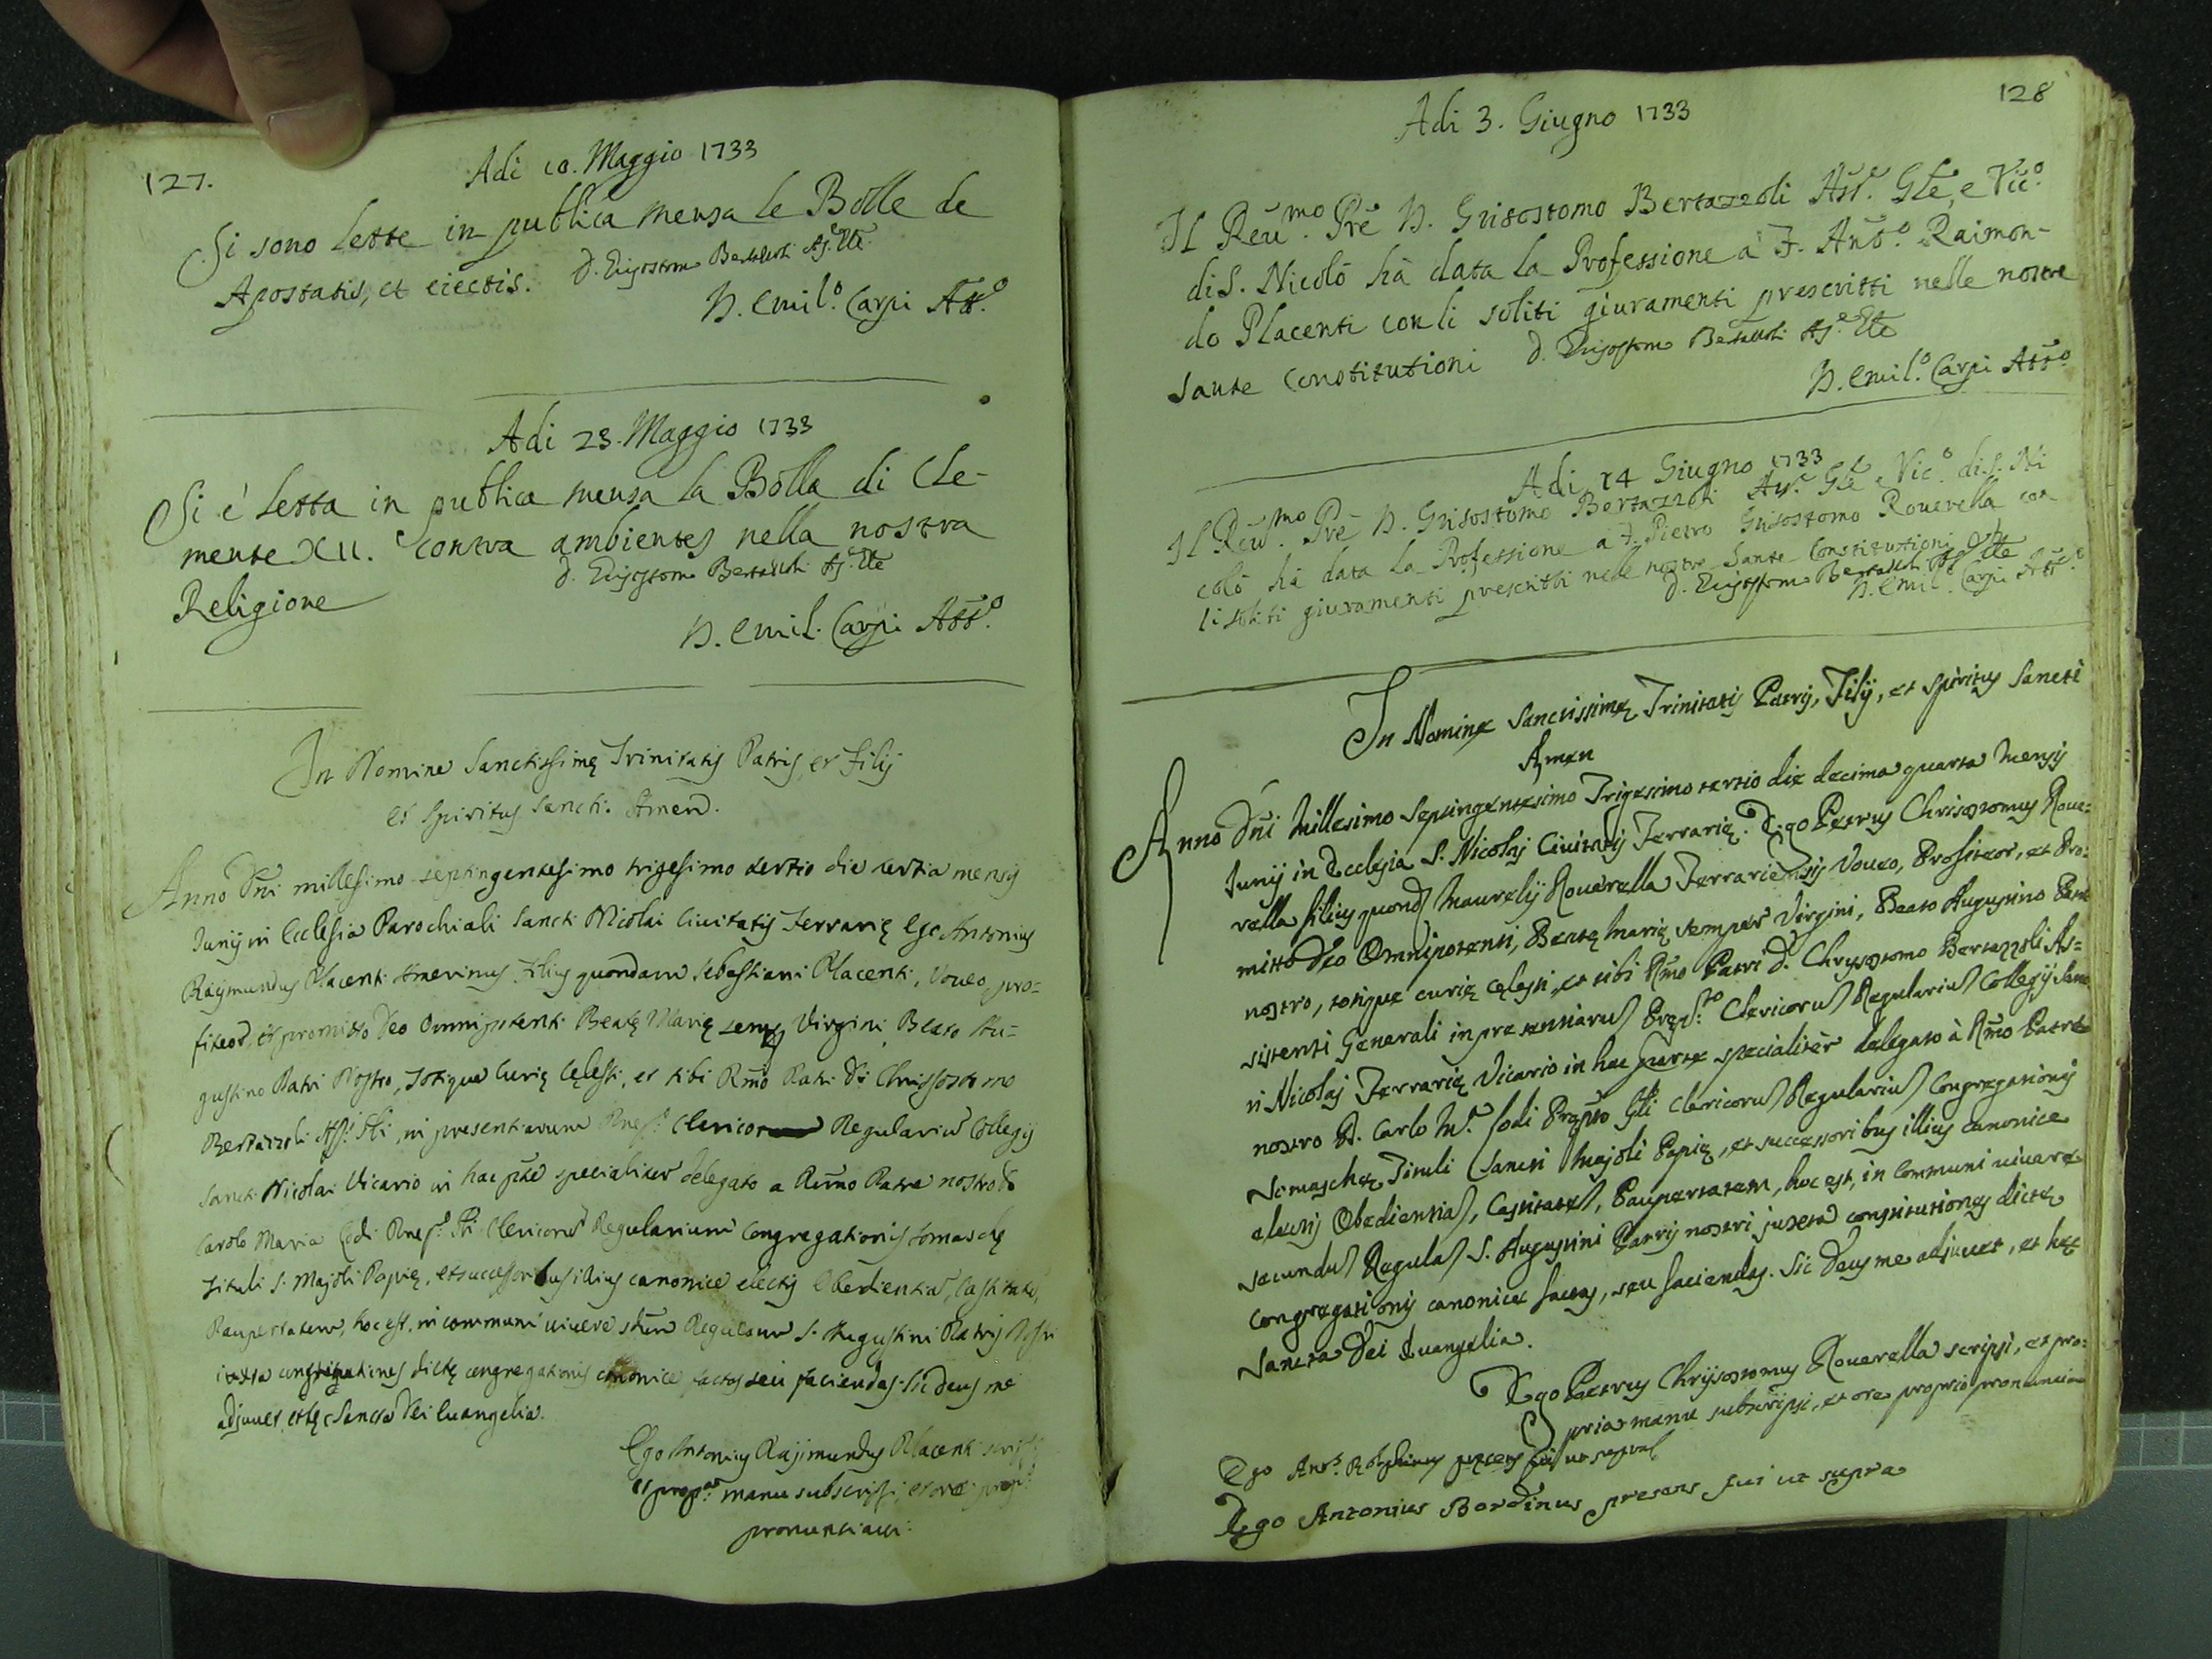 127.
Adi 10. Maggio 1733
Si sono lette in publica mensa le Bolle de
Apostatis, et eiectis.
D. Grisostomo Bertazzoli Ass.e Gle
D. Emil.o Carpi Att.o
Adi 23. Maggio 1733
Si è letta in publica mensa la Bolla di Cle-
mente XII. contra ambientes nella nostra
Religione
D. Grisostomo Bertazzoli Ass.e Gle
D. Emil. Carpi Att.o
In Nomine Sanctissimę Trinitatis Patris, et Filij
et Spiritus Sancti. Amen.
Anno Dñi millesimo septingentesimo trigesimo tertio die tertia mensis
Junij in Ecclesia Parochiali Sancti Nicolai Civitatis Ferrarię Ego Antonius
Raymundus Placenti Amerinus Filius quondam Sebastiani Placenti, Voveo, pro=
fiteor, et promitto Deo Omnipotenti Beatę Marię semp Virgini, Beato Au=
gustino Patri Nostro, Totique Curię Cęlesti, et tibi Rmo Patri D. Chrisostomo
Bertazzoli Ass. Gli, in presentiarum Clericorum Regularium Collegij
Sancti Nicolai Vicario in hac pte specialiter delegato a Rmo Patre nostro D
Carolo Maria Lodi Gli Clericorum Regularium Congregationis Somaschę
Tituli S. Majoli Papię, et successoribus illius canonice electis Obedientiam, Castitatem,
Paupertatem, hoc est, in communi vivere Regulam S. Augustini Patris Nostri
iuxta constitutiones dictę congregationis canonice factas seu faciendas. Sic Deus me
adjuvet, et hęc Sancta Dei Evangelia.
Ego Antonius Raijmundus Placenti scripsi
et manu subscripsi, et ore
pronuntiavi.
128
Adi 3. Giugno 1733
Il Reu.mo Prẽ D. Grisostomo Bertazzoli Ass.e Gle, e Vic.o
di S. Nicolò hà data la Professione a F. Ant.o Raimon-
do Placenti con li soliti giuramenti prescritti nelle nostre
sante Constitutioni
D. Grisostomo Bertazzoli Ass.e Gle
D. Emil.o Carpi Att.o
Adi 14 Giugno 1733
Il Reu.mo Prẽ D. Grisostomo Bertazzoli Ass.e Gle e Vic.o di S. Ni
colò hà data la Professione a F. Pietro Grisostomo Rouerella con
li soliti giuramenti prescritti nelle nostre sante Constitutioni
D. Grisostomo Bertazzoli Ass.e Gle
D. Emil.o Carpi Att.o
In Nomine Sanctissimę Trinitatis Patris, Filij, et Spiritus Sancti
Amen
Anno Dñi Millesimo Septingentesimo Trigesimo tertio die decima quarta Mensis
Junij in Ecclesia S. Nicolaj Civitatis Ferrarię. Ego Petrus Chrisostomus Roue=
rella filius quond Maurelij Rouerella Ferrariensis Voveo, Profiteor, et Pro=
mitto Deo Omnipotenti, Beatę Marię semper Virgini, Beato Augustino Patri
nostro, totique curię cęlesti, et tibi Rmo Patri D. Chrysostomo Bertazzoli As=
sistenti Generali in presentiarum Pręp.to Clericorum Regularium Collegij Sanc
ti Nicolaj Ferrarię Vicario in hac parte specialiter delegato à Rmo Patre
nostro D. Carlo M.a Lodi Pręp.to Gli Clericorum Regularium Congregationis
Somaschę Tituli Sancti Majoli Papię, et successoribus illius canonice
electis Obedientiam, Castitatem, Paupertatem, hoc est, in communi vivere
secundum Regulam S. Augustini Patris nostri juxta constitutiones dictę
Congregationis canonice factas, seu faciendas. Sic Deus me adjuvet, et hęc
Sancta Dei Evangelia.
Ego Petrus Chrijsostomus Rouerella scripsi, et pro=
pria manu subscripsi, et ore proprio pronunciavi
Ego Ant.s pręsens fui ut supra
Ego Antonius Bordinus presens fui ut supra